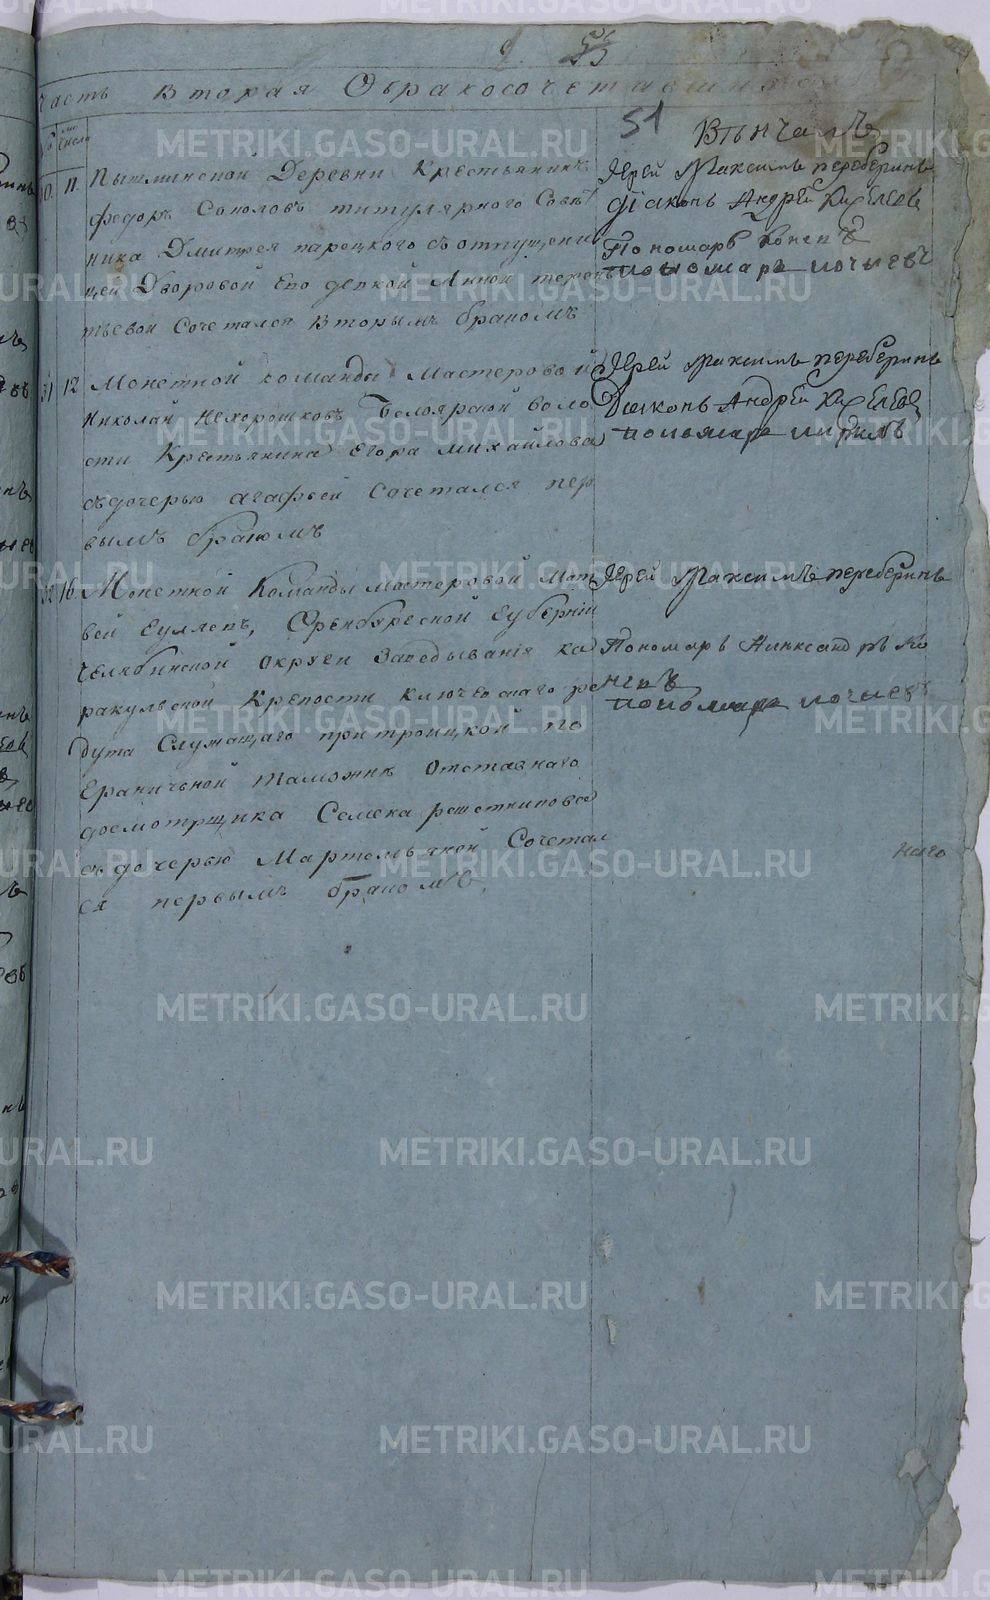 Часть Вторая Обракосочетавшихся
51
Числа
Вѣнчалъ
30. 11. Пышминской Деревни Крестьянинъ
федоръ Соколовъ титулярного Совѣт
ника Дмитрея парецкого съ отпущен
цей Дворовой Его девкой Анной терен
тьевой Сочетался Вторымъ бракомъ
Іерей Максимъ переберинъ
діаконъ Андрей Киселевъ
Пономарь
пономарь
31 12 Монетной команды Мастеровой
Николай Нехорошковъ Белоярской воло
сти Крестьянина Егора михайлова
съ дочерью агафьей Сочетался пер
вымъ бракомъ
Іерей Максимъ переберинъ
Дьяконъ Андрей Киселевъ
пономарь
32 16 Монетной Команды мастеровой Мат
вей Гуляевъ, Оренбургской Губерніи
Челябинской округи Заведыванія ка
ракульской Крепости ключевскаго ре
дута Служащаго при троицкой по
граничьной таможне отставнаго
досмотрщика Семена решетникова
съ дочерью Мартемьяной Сочетал
ся первымъ бракомъ
Іерей Максимъ переберинъ
Пономарь Александръ Ко
пономарь
METRIKI.GASO-URAL.RU